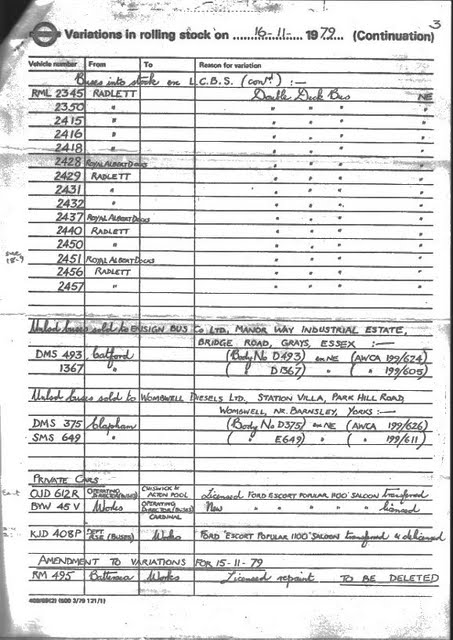 3
Variations in rolling stock on 16-11- 1979 (Continuation)
Vehicle number From To Reason for variation
Buses into stock ex L.C.B.S. (cont'd) :—
RML 2345 RADLETT Double Deck Bus NE
2350 " " " " "
2415 " " " " "
2416 " " " " "
2418 " " " " "
2428 ROYAL ALBERT DOCKS " " " "
2429 RADLETT " " " "
2431 " " " " "
2432 " " " " "
2437 ROYAL ALBERT DOCKS " " " "
2440 RADLETT " " " "
2450 " " " " "
2451 ROYAL ALBERT DOCKS " " " "
2456 RADLETT " " " "
2457 " " " " "
buses sold to ENSIGN BUS Co LTD, MANOR WAY INDUSTRIAL ESTATE,
BRIDGE ROAD, GRAYS, ESSEX :—
DMS 493 Catford (Body No D493) ex NE (AWCA 199/624)
1367 " ( " D1367) " ( " 199/605)
buses sold to WOMBWELL DIESELS LTD. STATION VILLA, PARK HILL ROAD,
WOMBWELL, NR. BARNSLEY, YORKS :—
DMS 375 Clapham (Body No D375) ex NE (AWCA 199/626)
SMS 649 " ( " E649) " ( " 199/611)
PRIVATE CARS
OJD 612R OPERATING DIRECTOR (BUSES) CHISWICK & ACTON POOL Licensed FORD ESCORT POPULAR 1100 SALOON transferred
BYW 45V Works OPERATING DIRECTOR (BUSES) CARDINAL New " " " " licensed
KJD 408P DEPT (BUSES) Works FORD "ESCORT POPULAR 1100" SALOON transferred & delicensed
AMENDMENT TO VARIATIONS FOR 15-11-79
RM 495 Battersea Works Licensed repaint TO BE DELETED